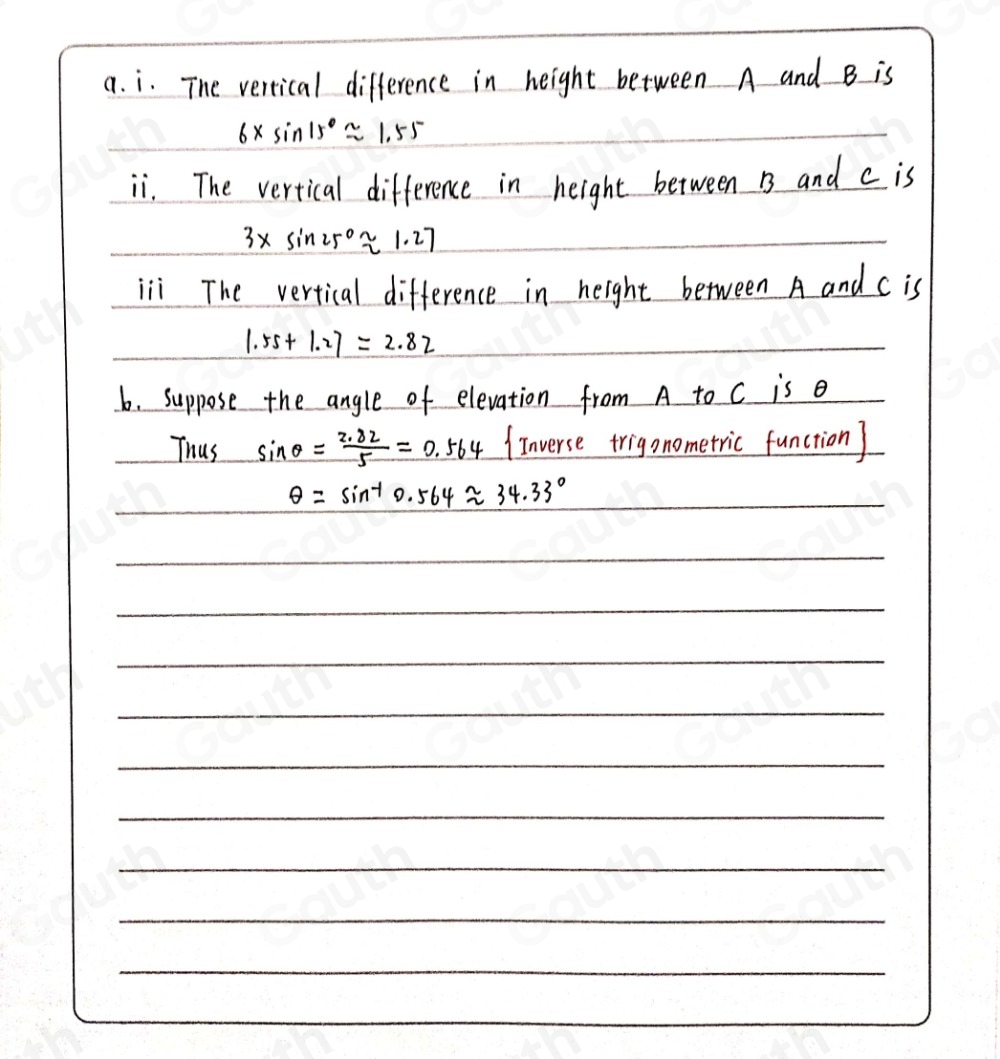 a. i. The vertical difference in height between A and B is
6 x sin 15° ≈ 1.55
ii. The vertical difference in height between B and C is
3 x sin 25° ≈ 1.27
iii The vertical difference in height between A and C is
1.55 + 1.27 = 2.82
b. Suppose the angle of elevation from A to C is θ
Thus sin θ = 2.82/5 = 0.564 {Inverse trigonometric function}
θ = sin⁻¹ 0.564 ≈ 34.33°
Gauth